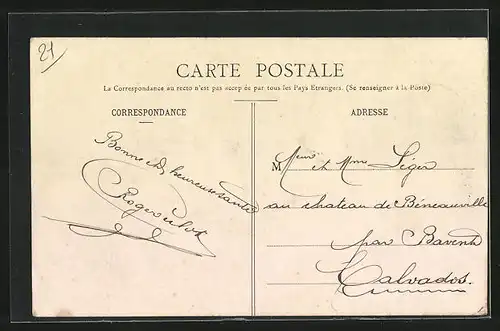 21
CARTE POSTALE
La Correspondance au recto n'est pas acceptée par tous les Pays Etrangers. (Se renseigner à la Poste)
CORRESPONDANCE
ADRESSE
Bonne et heureuse santé
Roger
Meur et Mme Léger
au chateau de Béneauville
par Bavent
Calvados.